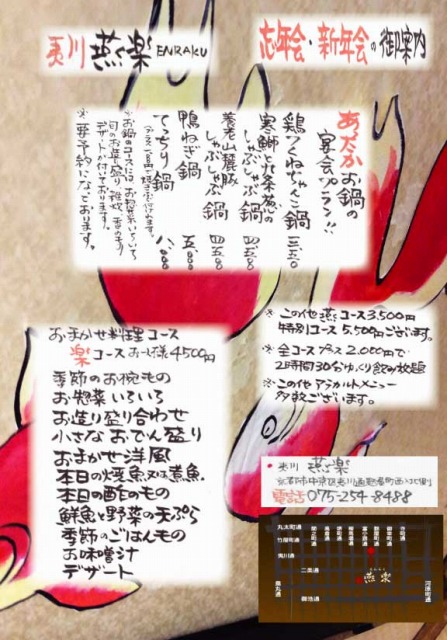 夷川 燕楽 ENRAKU
忘年会・新年会の御案内
あったかお鍋の
宴会プラン!!
鶏つくねちゃんこ鍋 三、五〇〇
寒鰤と九条葱の
しゃぶしゃぶ鍋 四、五〇〇
養老山麓豚
しゃぶしゃぶ鍋 四、五〇〇
鴨ねぎ鍋 五、五〇〇
てっちり鍋 八、〇〇〇
※お鍋のコースには、お惣菜いろいろ
旬のお造り盛り、雑炊、香のもの
デザートが付いております。
※要予約になっております。
※この他燕コース3,500円
特別コース5,500円ございます。
※全コースプラス2,000円で
2時間30分ゆっくり飲み放題
※この他アラカルトメニュー
多数ございます。
おまかせ料理コース
楽コース お一人様4500円
季節のお椀もの
お惣菜いろいろ
お造り盛り合わせ
小さなおでん盛り
おまかせ洋風
本日の焼魚又は煮魚
本日の酢のもの
鮮魚と野菜の天ぷら
季節のごはんもの
お味噌汁
デザート
夷川 燕楽
京都市中京区夷川通麩屋町西入ル
電話 075-254-8488
丸太町通
竹屋町通
夷川通
二条通
御池通
烏丸通
河原町通
燕楽